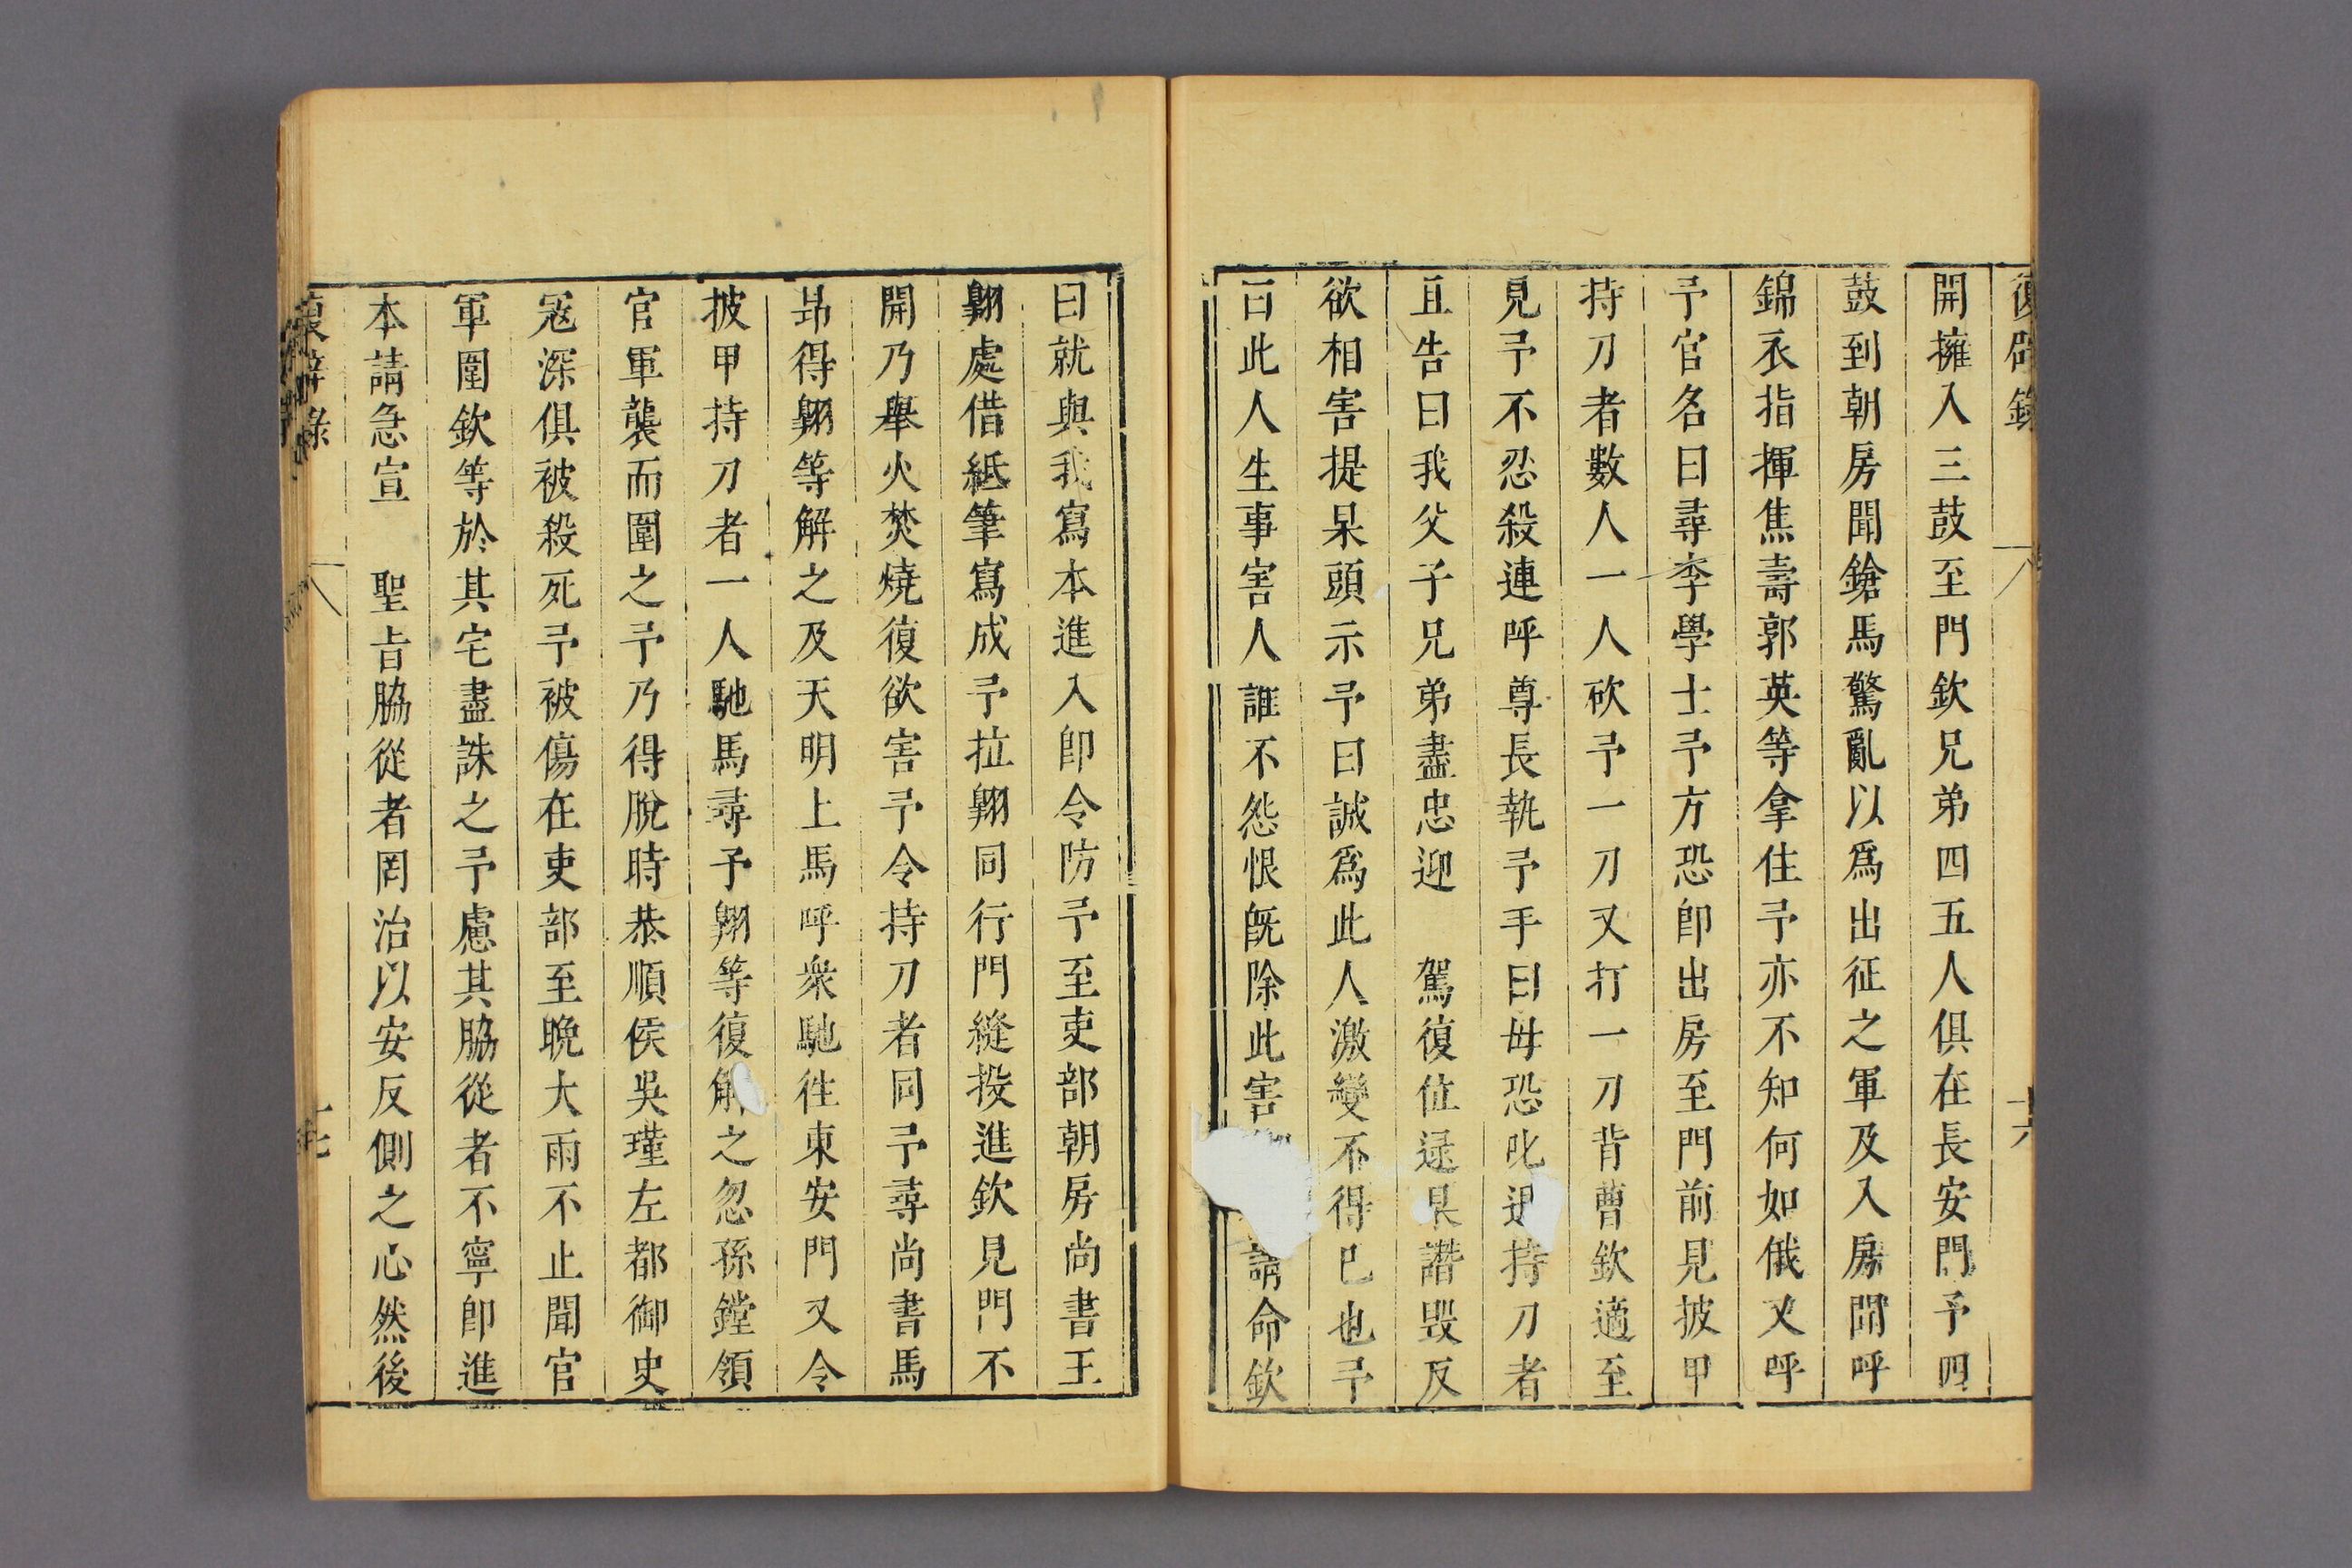 復辟錄 十六
開擁入三鼓至門欽兄弟四五人俱在長安門予四
鼓到朝房聞鎗馬驚亂以爲出征之軍及入房閒呼
錦衣指揮焦壽郭英等拿住予亦不知何如俄又呼
予官名曰尋李學士予方恐卽出房至門前見披甲
持刀者數人一人砍予一刀又打一刀背曹欽適至
見予不忍殺連呼尊長執予手曰毋恐叱退持刀者
且告曰我父子兄弟盡忠迎 駕復位逯杲譖毀反
欲相害提杲頭示予曰誠爲此人激變不得巳也予
曰此人生事害人誰不怨恨旣除此害 請命欽
曰就與我寫本進入卽令防予至吏部朝房尚書王
翱處借紙筆寫成予拉翱同行門縫投進欽見門不
開乃舉火焚燒復欲害予令持刀者同予尋尚書馬
昻得翱等解之及天明上馬呼衆馳徃東安門又令
披甲持刀者一人馳馬尋予翱等復解之忽孫鏜領
官軍襲而圍之予乃得脫時恭順侯吳瑾左都御史
宼深俱被殺死予被傷在吏部至晩大雨不止聞官
軍圍欽等於其宅盡誅之予慮其脇從者不寧卽進
本請急宣 聖旨脇從者罔治以安反側之心然後
復辟錄 十七